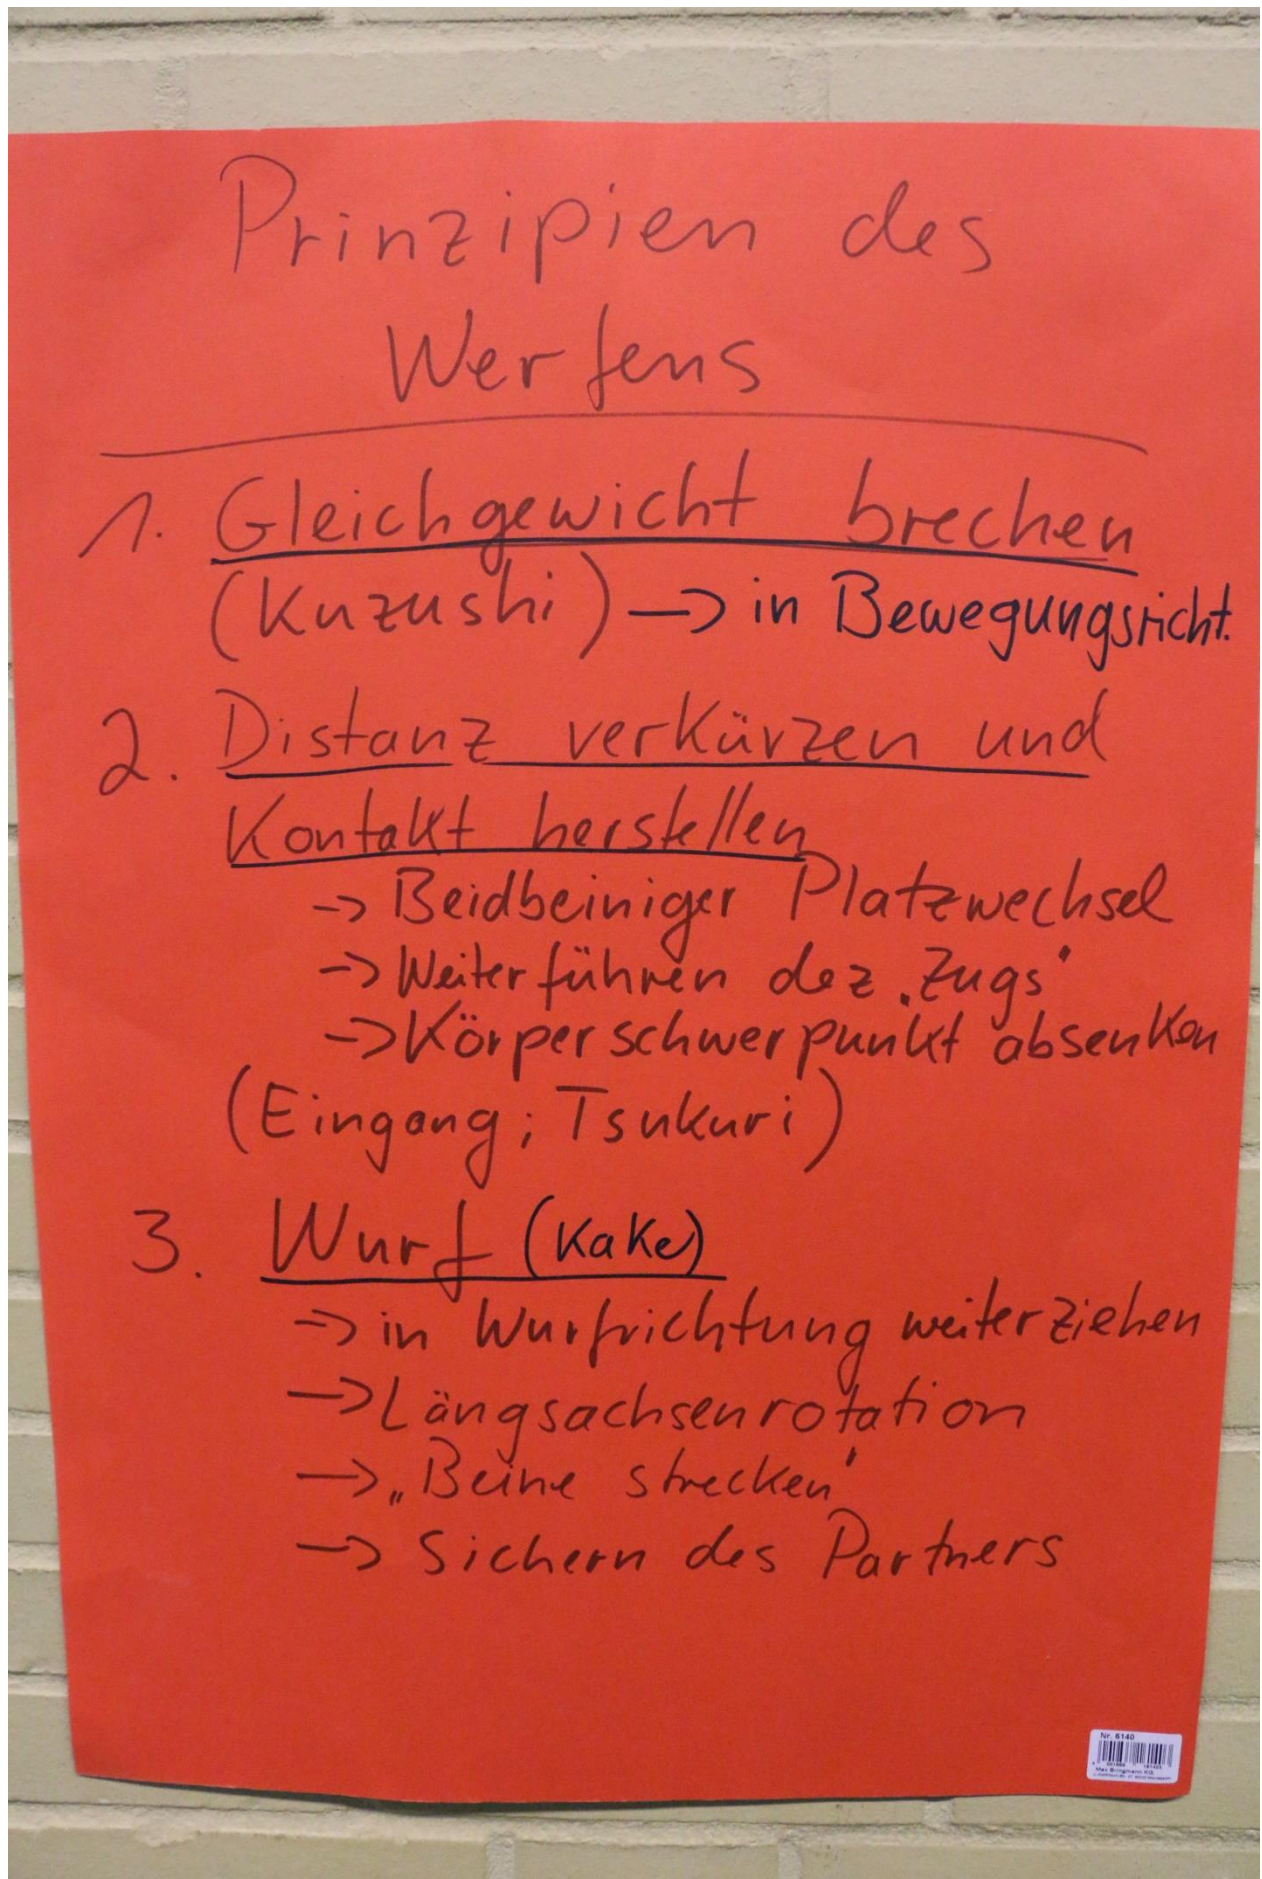 Prinzipien des
Werfens
1. Gleichgewicht brechen
(Kuzushi) -> in Bewegungsricht.
2. Distanz verkürzen und
Kontakt herstellen
-> Beidbeiniger Platzwechsel
-> Weiterführen dez "Zugs"
-> Körperschwerpunkt absenken
(Eingang; Tsukuri)
3. Wurf (Kake)
-> in Wurfrichtung weiterziehen
-> Längsachsenrotation
-> „Beine strecken"
-> Sichern des Partners
Nr. 6140
Max Bringmann KG,